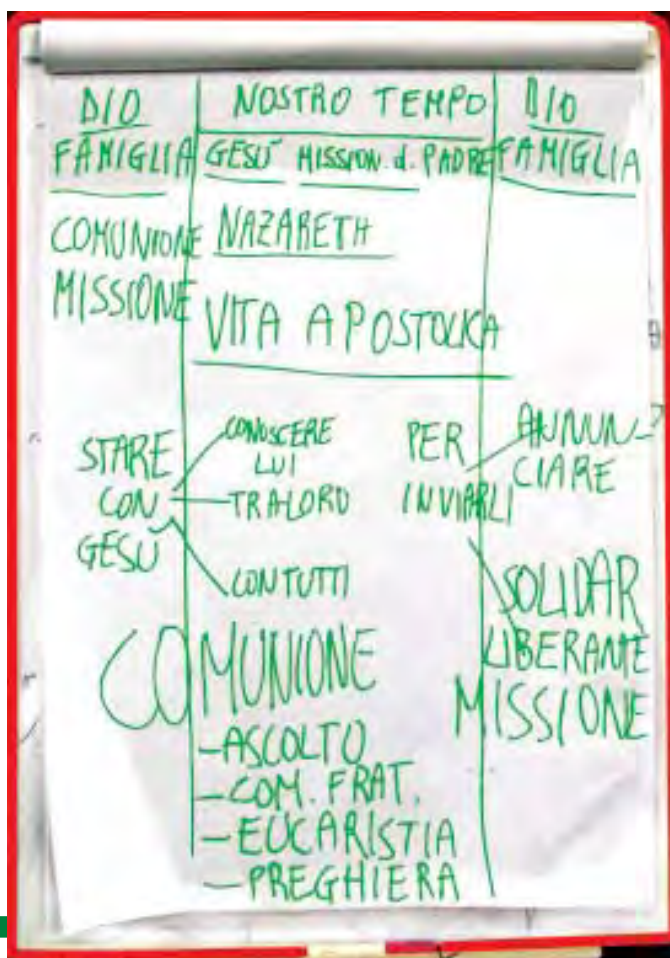 DIO
FAMIGLIA
COMUNIONE
MISSIONE
NOSTRO TEMPO
GESÙ MISSION. d. PADRE
NAZARETH
VITA APOSTOLICA
DIO
FAMIGLIA
STARE
CON
GESÙ
CONOSCERE
LUI
TRA LORO
CON TUTTI
PER
INVIARLI
ANNUN-
CIARE
SOLIDAR
LIBERANTE
COMUNIONE
MISSIONE
-ASCOLTO
-COM. FRAT.
-EUCARISTIA
-PREGHIERA